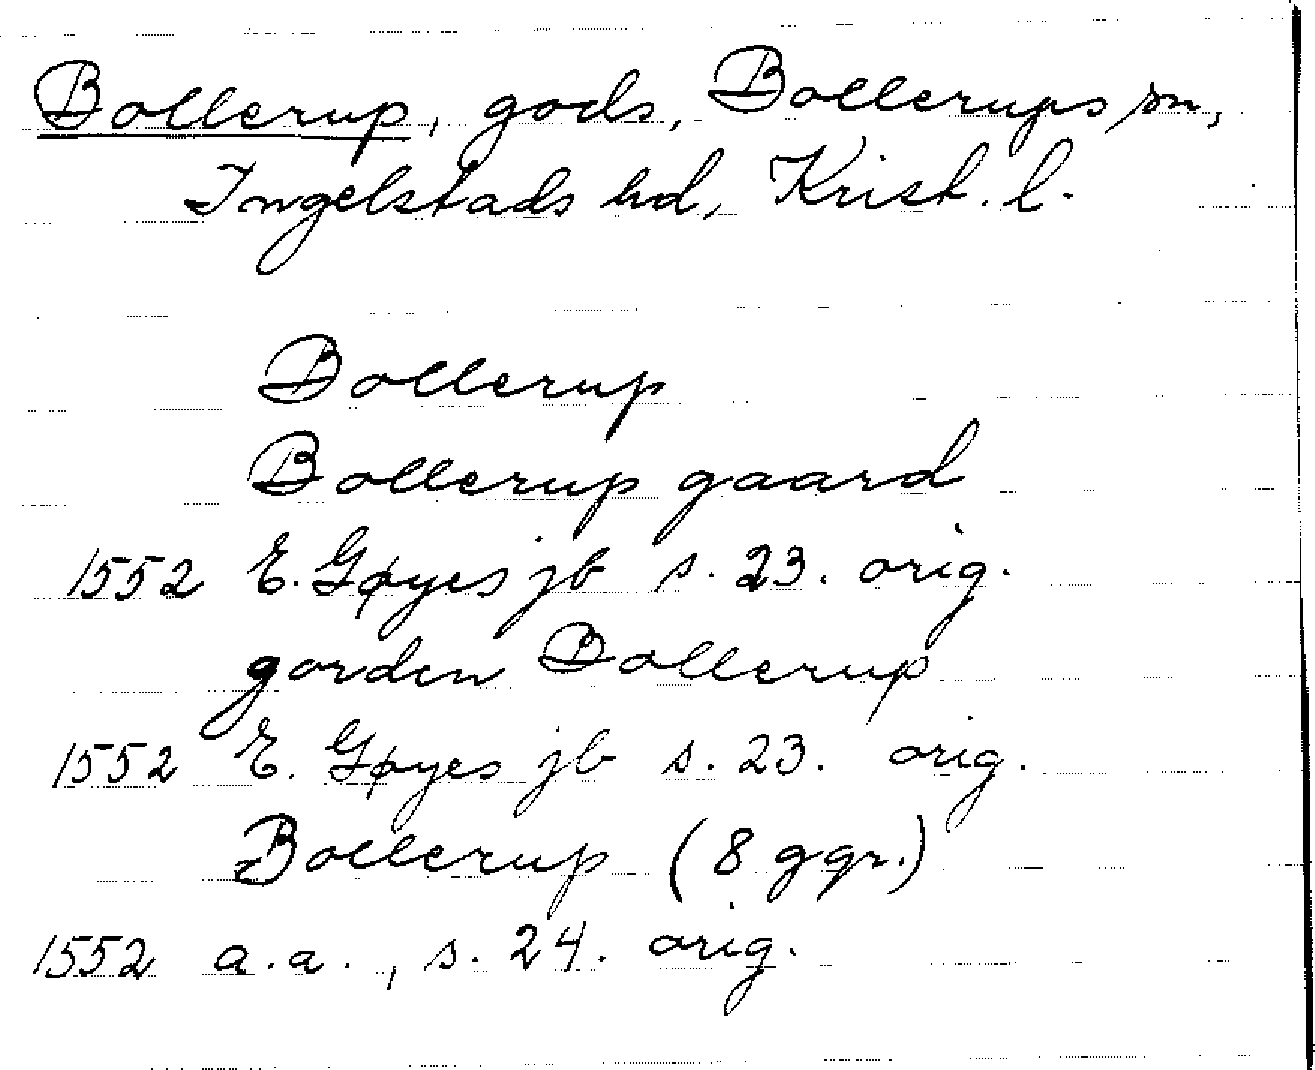 Bollerup, gods, Bollerups sn,
Ingelstads hd, Krist. l.
Bollerup
Bollerup gaard
1552 E. Gøyes jb s. 23. orig.
gorden Bollerup
1552 E. Gøyes jb s. 23. orig.
Bollerup (8 ggr.)
1552 a.a., s. 24. orig.